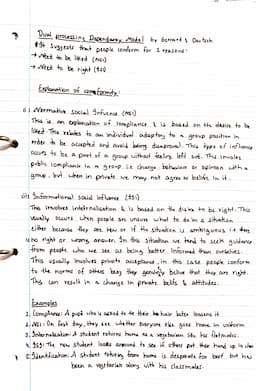 Dual processing Dependancy Model by Gerrard & Deutsch
It suggests that people conform for 2 reasons:
→ Need to be liked (NSI)
→ Need to be right (ISI)
Explanation of conformity:
i) Normative Social Influence (NSI)
This is an explanation of compliance & is based on the desire to be
liked. This relates to an individual adapting to a group position in
order to be accepted and avoid being disapproval. This type of influence
occurs to be a part of a group without feeling left out. This involves
public compliance in a group i.e change behaviour or opinion with a
group, but when in private we may not agree or believe in it.
ii) Informational Social Influence (ISI)
This involves internalisation & is based on the desire to be right. This
usually occurs when people are unsure what to do in a situation
either because they are new or if the situation is ambiguous i.e there
is no right or wrong answer. In this situation we tend to seek guidance
from people who we see as being better informed than ourselves.
This usually involves private acceptance, in this case people conform
to the norms of others bcoz they genuinely believe that they are right.
This can result in a change in private beliefs & attitudes.
Examples
1. Compliance: A pupil who is asked to tie their hair later loosens it
2. NSI: On first day, they see whether everyone else goes home in uniform
3. Internalisation: A student returns home as a vegetarian like his flatmates.
4. ISI: The new student looks around to see if others put their hand up in class
5. Identification: A student returning from home is desperate for beef but has
been a vegetarian along with his classmates.